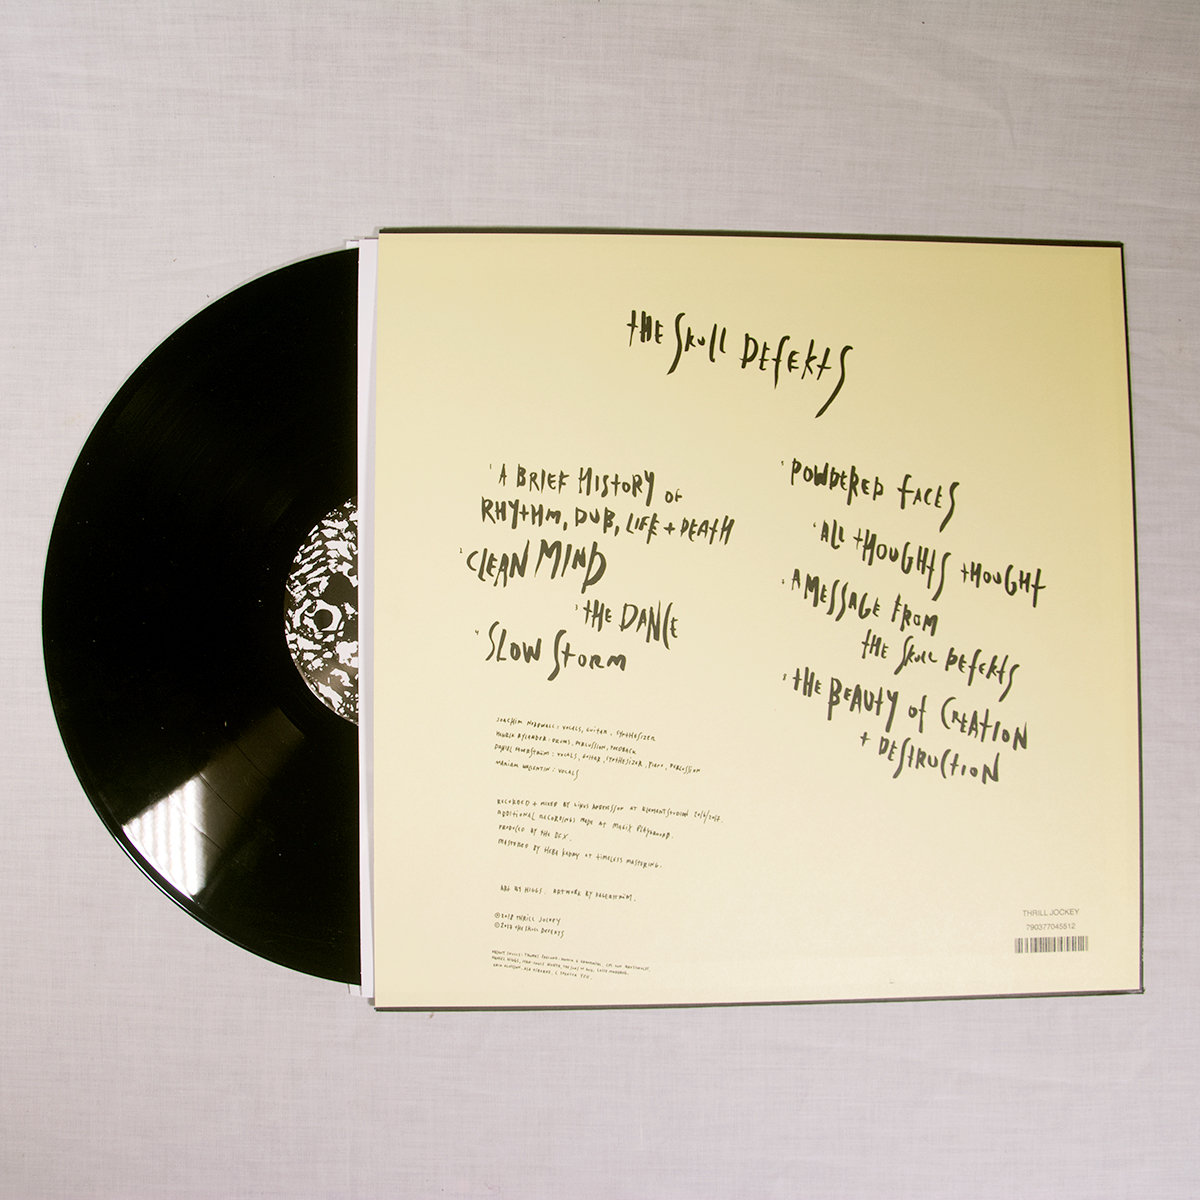 THE SKULL DEFEKTS
1 A BRIEF HISTORY OF
RHYTHM, DUB, LIFE + DEATH
2 CLEAN MIND
3 THE DANCE
4 SLOW STORM
5 POWDERED FACES
6 ALL THOUGHTS THOUGHT
7 A MESSAGE FROM
THE SKULL DEFEKTS
8 THE BEAUTY OF CREATION
+ DESTRUCTION
JOACHIM NORDWALL: VOCALS, GUITAR, SYNTHESIZER
HENRIK RYLANDER: DRUMS, PERCUSSION, FEEDBACK
DANIEL FAGERSTRÖM: VOCALS, GUITAR, SYNTHESIZER, PIANO, PERCUSSION
MARIAM WALLENTIN: VOCALS
RECORDED + MIXED BY LINUS ANDERSSON AT ELEMENTSTUDION 2016/2017.
ADDITIONAL RECORDINGS MADE AT MAGIK PLAYGROUND.
PRODUCED BY THE DEX.
MASTERED BY HEBA KADRY AT TIMELESS MASTERING.
ART BY HIGGS. ARTWORK BY FAGERSTRÖM.
℗ 2018 THRILL JOCKEY
© 2018 THE SKULL DEFEKTS
THRILL JOCKEY
790377045512